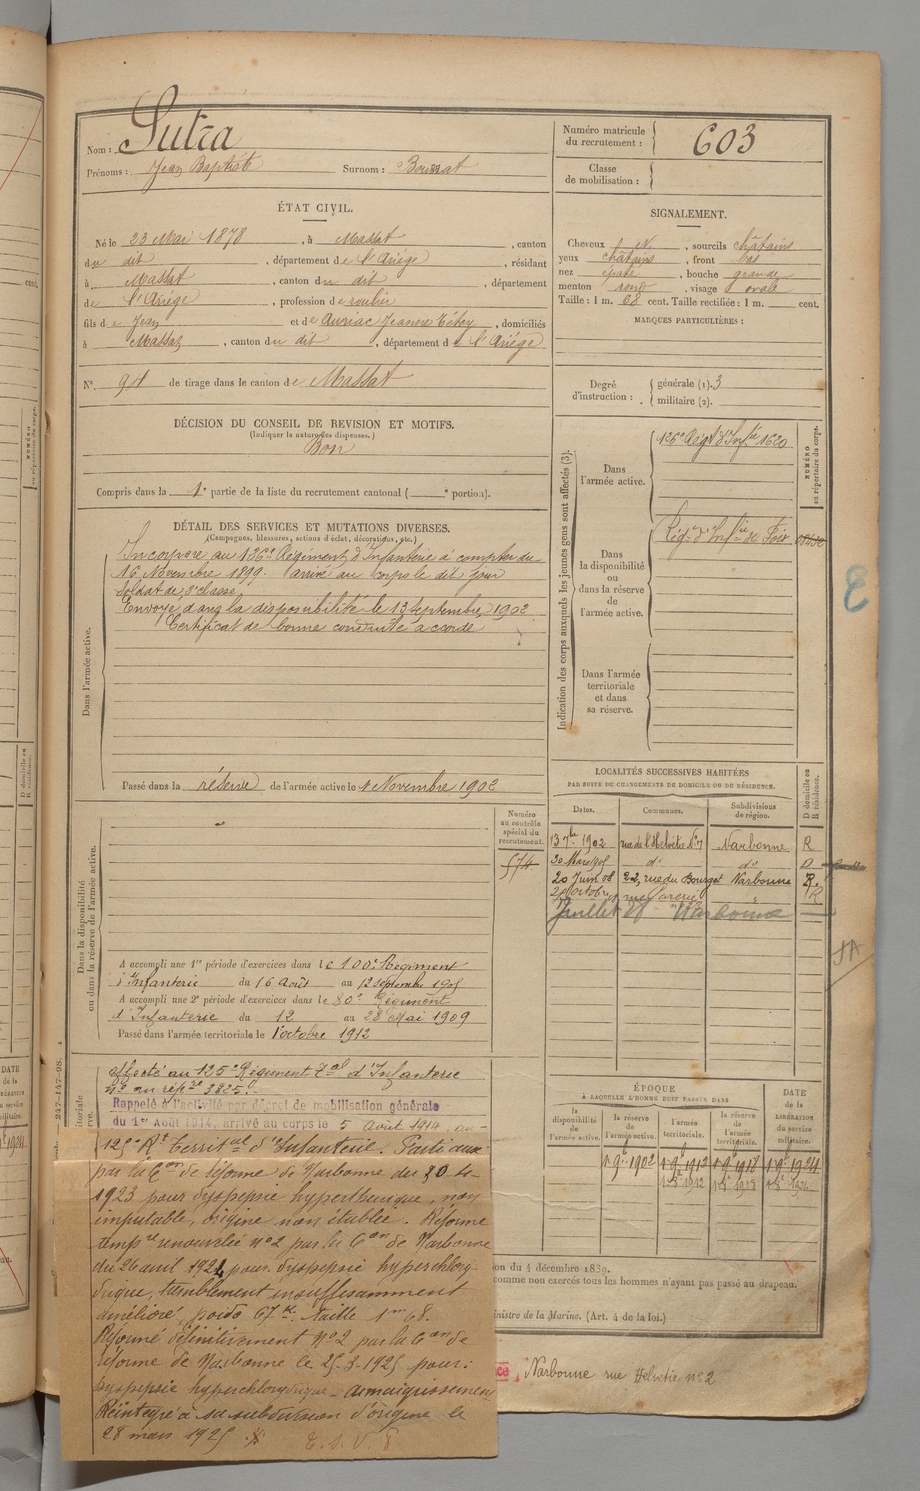 Nom : Sutra
Prénoms : Jean Baptiste Surnom : Bourrat
ÉTAT CIVIL.
Né le 23 Mai 1878, à Massat, canton
du dit, département de l'Ariège, résidant
à Massat, canton du dit, département
de l'Ariège, profession de roulier
fils de Jean et de Auriac Jeanne, domiciliés
à Massat, canton du dit, département de l'Ariège
N° 91 de tirage dans le canton de Massat
DÉCISION DU CONSEIL DE REVISION ET MOTIFS.
(Indiquer la nature des dispenses.)
Bon
Compris dans la 1e partie de la liste du recrutement cantonal ( e portion).
DÉTAIL DES SERVICES ET MUTATIONS DIVERSES.
(Campagnes, blessures, actions d'éclat, décorations, etc.)
Dans l'armée active.
Incorporé au 126e Régiment d'Infanterie à compter du
16 Novembre 1899. arrivé au corps le dit jour
Soldat de 2e classe
Envoyé dans la disponibilité le 13 Septembre 1902
Certificat de bonne conduite accordé
Passé dans la réserve de l'armée active le 1 Novembre 1902
Dans la disponibilité
ou dans la réserve de l'armée active.
Numéro
au contrôle
spécial du
recrutement.
574
A accompli une 1re période d'exercices dans le 100e Régiment
d'Infanterie du 16 Août au 12 septembre 1905
A accompli une 2e période d'exercices dans le 80e Régiment
d'Infanterie du 12 au 28 Mai 1909
Passé dans l'armée territoriale le 1 octobre 1912
affecté au 125e Régiment Tal d'Infanterie
n° au rép.re 3825.
Rappelé à l'activité par décret de mobilisation générale
du 1er Août 1914, arrivé au corps le 5 Août 1914 au
125e Rt Territal d'Infanterie.
par la Con de réforme de Narbonne du 20 4
1923 pour dyspepsie hyperthenique, non
imputable, origine non établie. Réforme
tempre renouvelée n°2 par la Con de Narbonne
du 26 avril 1924 pour dyspepsie hyperchlory-
drique, sensiblement insuffisamment
amélioré, poids 67 k. taille 1m 68.
Réformé définitivement N°2 par la Con de
réforme de Narbonne le 25-3-1925 pour:
dyspepsie hyperchlorydrique - amaigrissement
Réintégré à sa subdivision d'origine le
28 mars 1925
Numéro matricule
du recrutement : 603
Classe
de mobilisation :
SIGNALEMENT.
Cheveux et, sourcils châtains
yeux châtains, front bas
nez épaté, bouche grande
menton rond, visage ovale
Taille : 1 m. 68 cent. Taille rectifiée : 1 m. cent.
MARQUES PARTICULIÈRES :
Degré
d'instruction :
générale (1). 3
militaire (2).
Indication des corps auxquels les jeunes gens sont affectés (3).
NUMÉRO
au répertoire du corps.
Dans
l'armée active.
126e Régt d'Infie 1620
Dans
la disponibilité
ou
dans la réserve
de
l'armée active.
Rég. d'Infie de Foix
Dans l'armée
territoriale
et dans
sa réserve.
LOCALITÉS SUCCESSIVES HABITÉES
PAR SUITE DE CHANGEMENTS DE DOMICILE OU DE RÉSIDENCE.
Dates. Communes. Subdivisions de région. D domicile ou R résidence.
13 7bre 1902 rue de l'Helvétie N°7 Narbonne R
30 Mars 1905 do do D
20 Juin 08 22, rue du Bourget Narbonne R.
Juillet 28 Narbonne
ÉPOQUE
À LAQUELLE L'HOMME DOIT PASSER DANS
la disponibilité de l'armée active.
la réserve de l'armée active.
l'armée territoriale.
la réserve de l'armée territoriale.
DATE de la LIBÉRATION du service militaire.
1 9e 1902 1 9e 1912 1 9e 1918 1 9e 1924
1 8e 1912 1 8e 1918 1 8e 1924
on du 4 décembre 1889.
comme non exercés tous les hommes n'ayant pas passé au drapeau.
inistre de la Marine. (Art. 4 de la loi.)
Narbonne rue Helvétie n°2